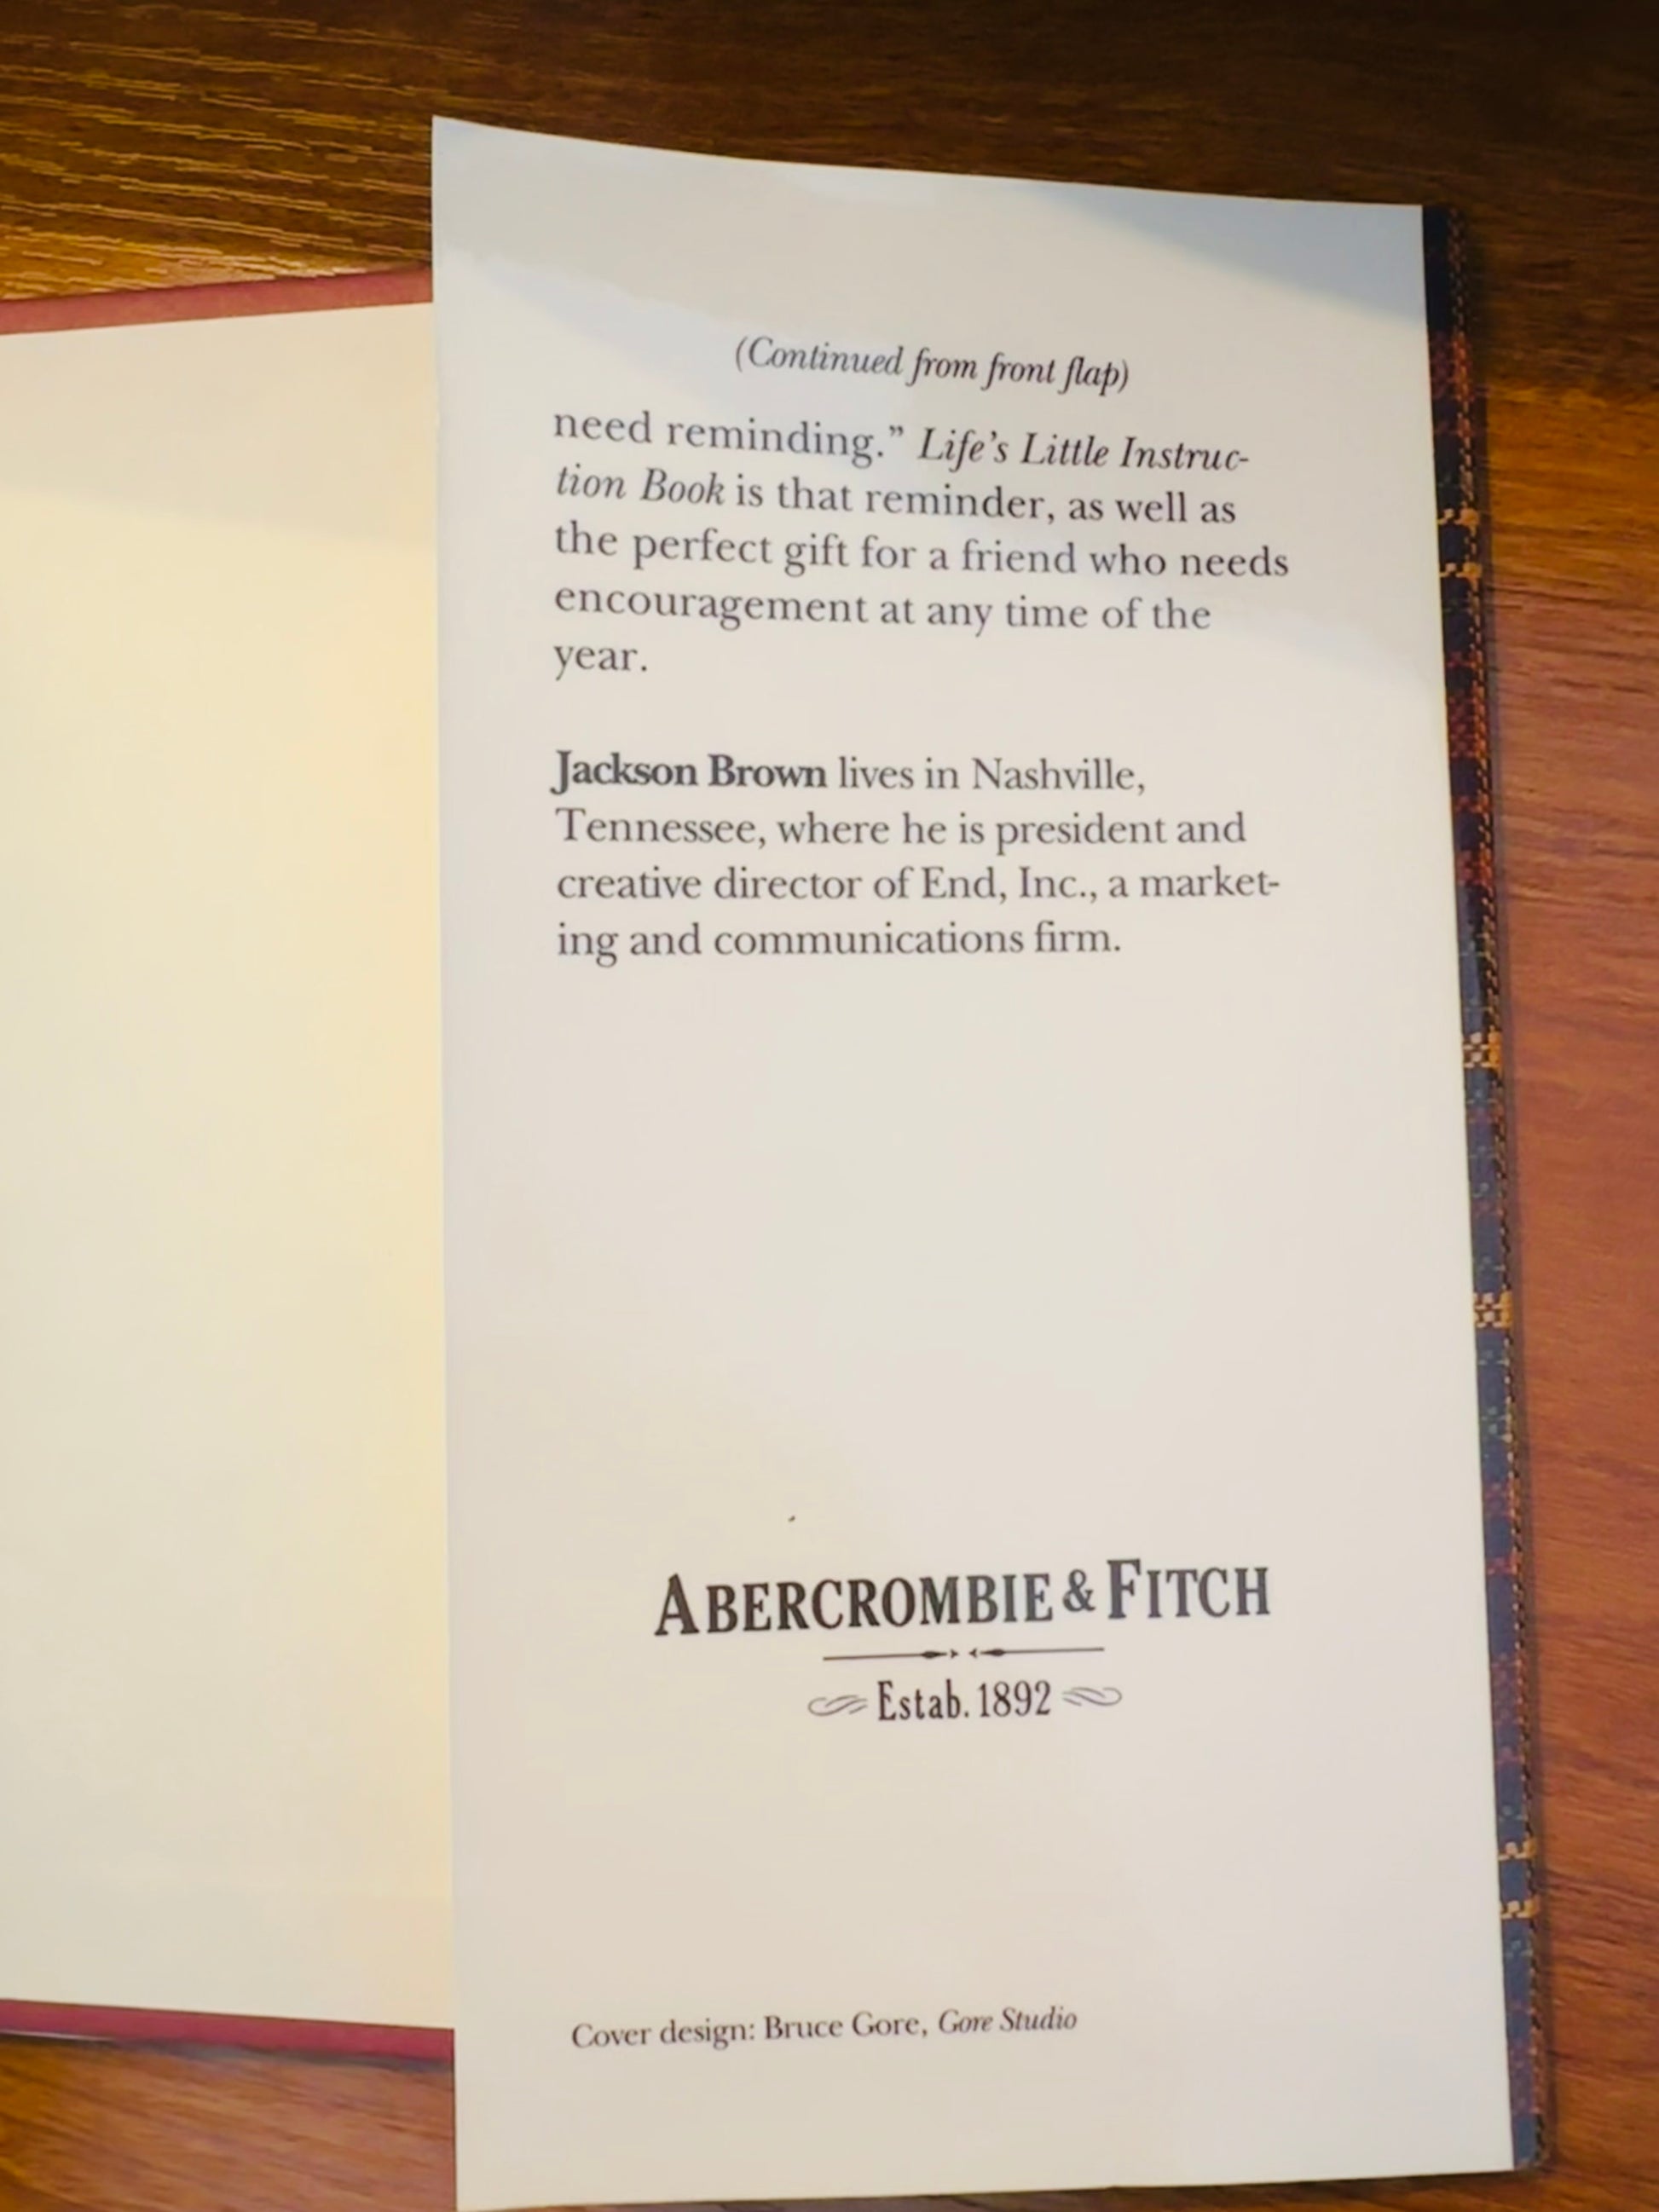 (Continued from front flap)
need reminding.” Life’s Little Instruc-
tion Book is that reminder, as well as
the perfect gift for a friend who needs
encouragement at any time of the
year.
Jackson Brown lives in Nashville,
Tennessee, where he is president and
creative director of End, Inc., a market-
ing and communications firm.
ABERCROMBIE & FITCH
Estab. 1892
Cover design: Bruce Gore, Gore Studio